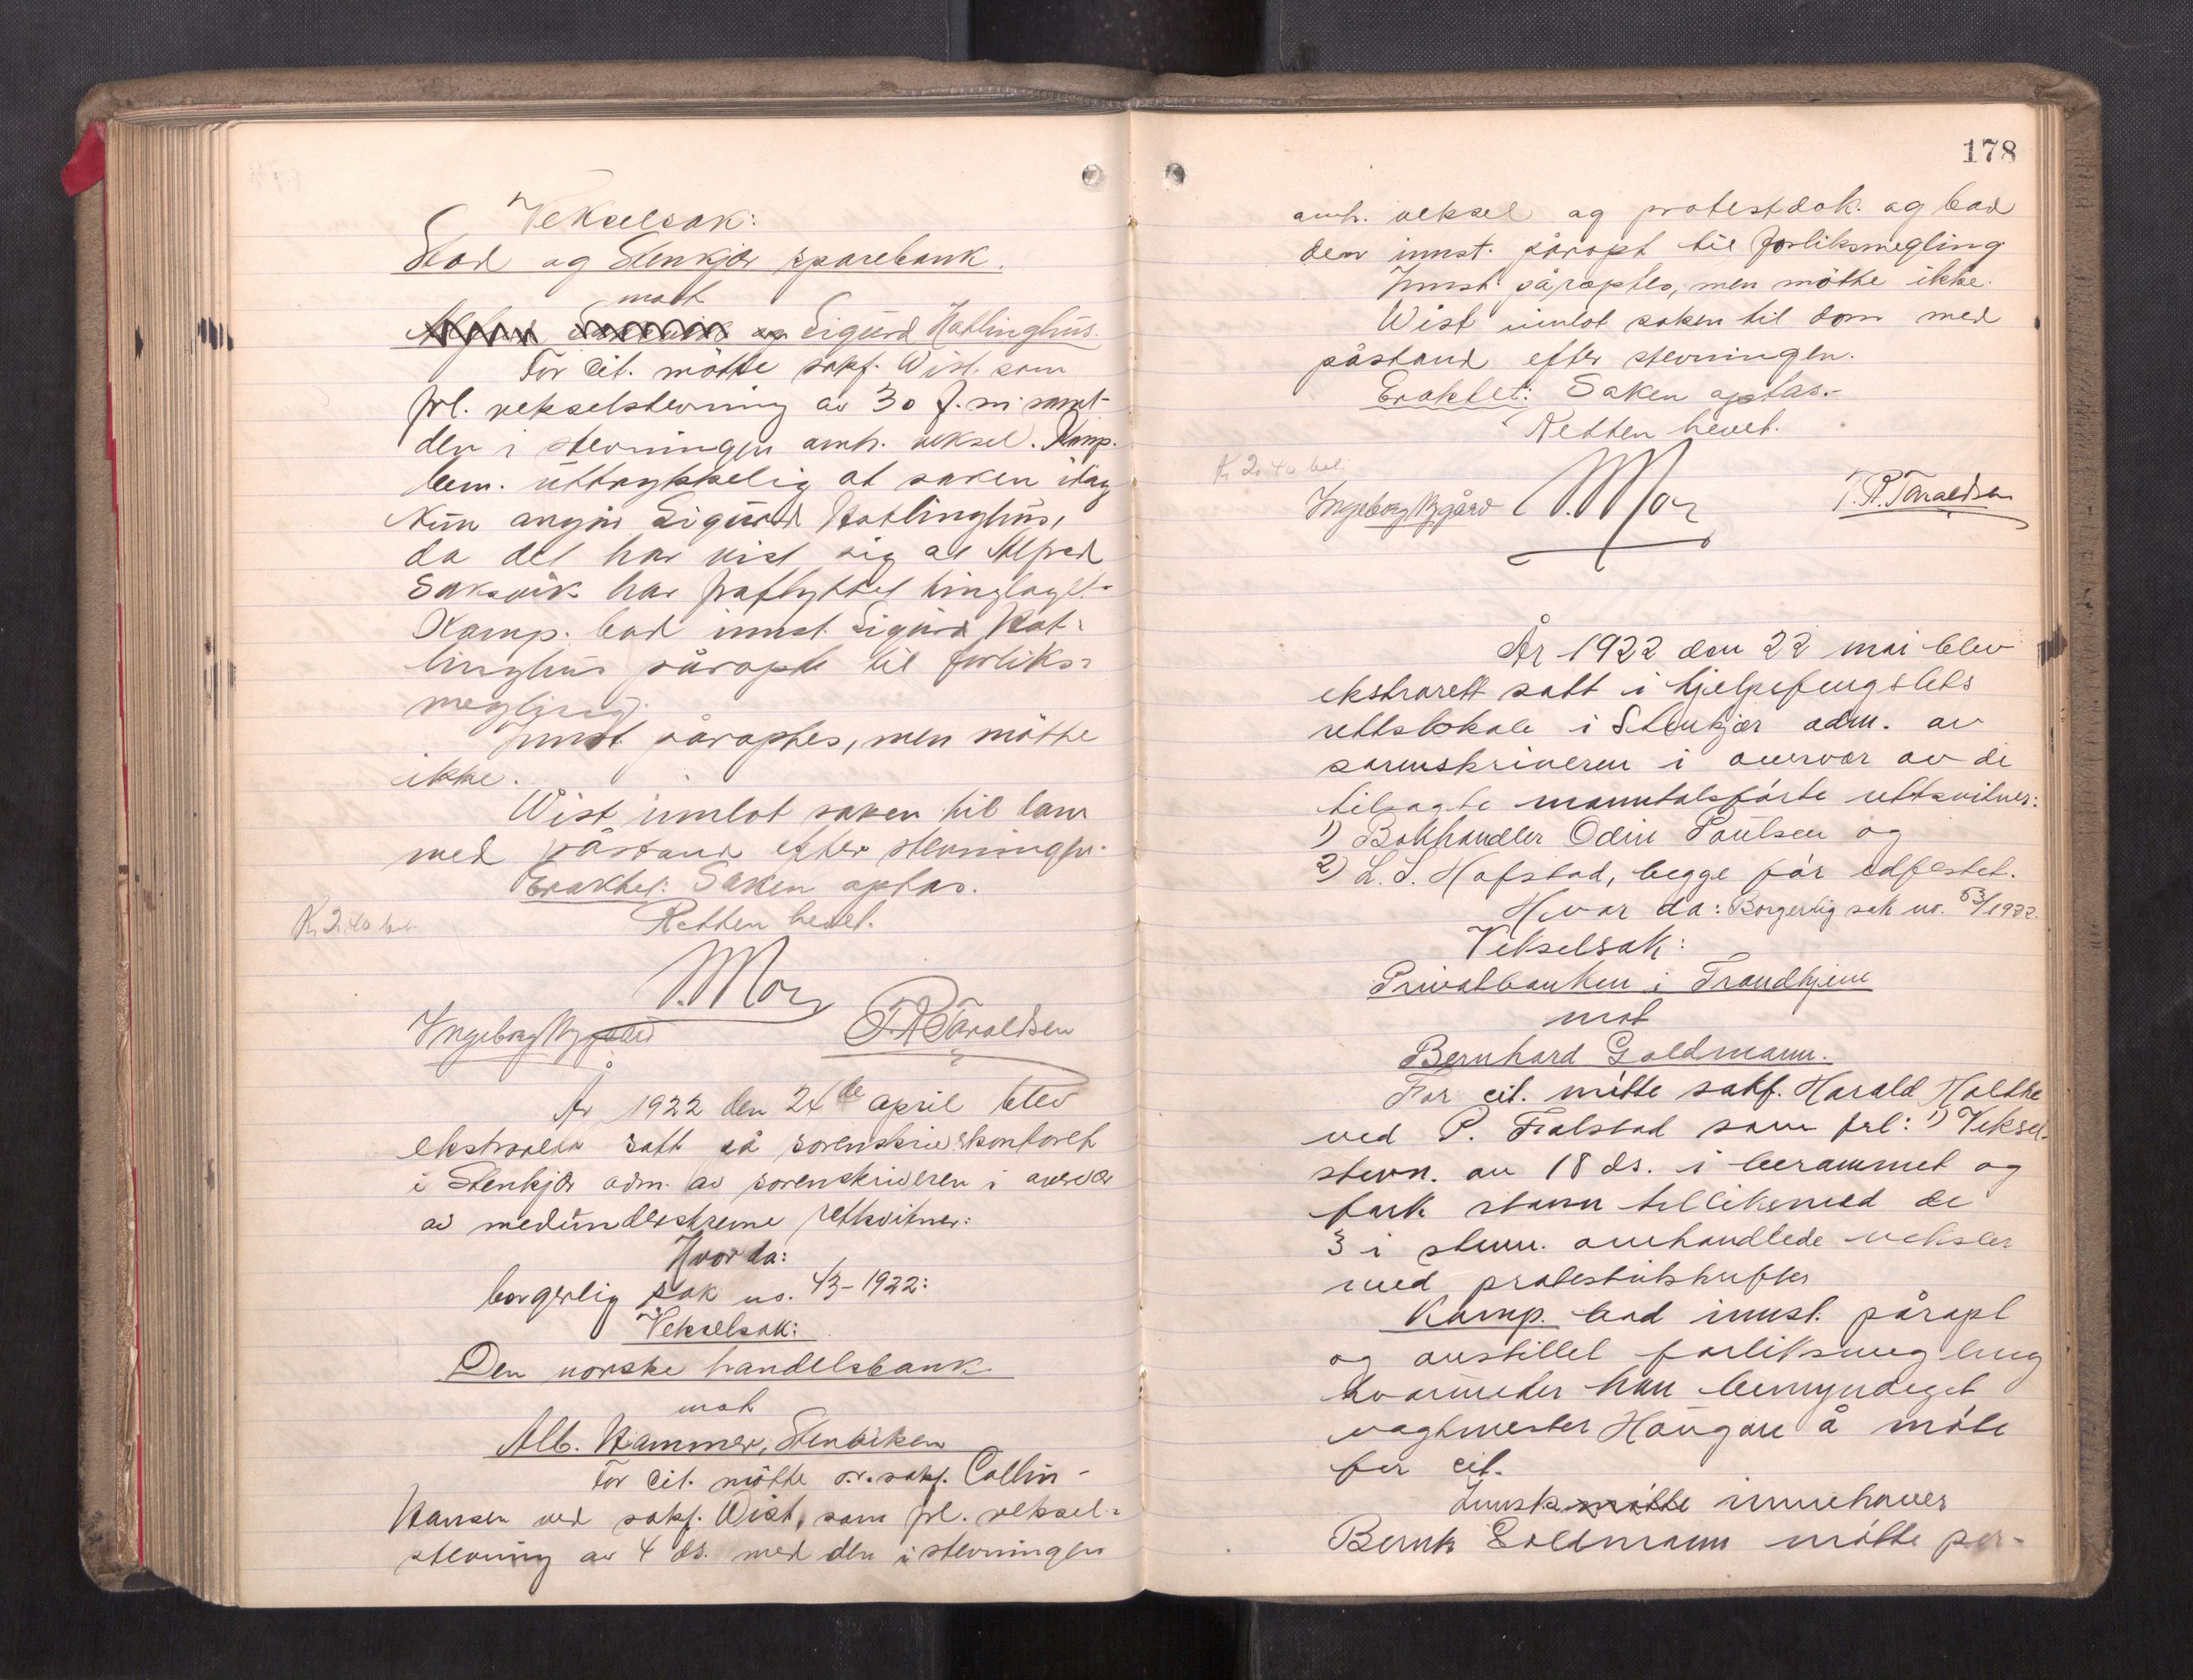 Vekselsak:
Stod og Stenkjær sparebank.
mot
og Sigurd Hatlinghus.
For cit. møtte sakf. Wist som
frl. vekselstevning av 30 f. m. samt
den i stevningen omh. veksel. Komp.
bem. uttrykkelig at saken idag
kun angår Sigurd Hatlinghus,
da det har vist sig at Alfred
Saksvik har fraflyttet tinglaget.
Komp. bad innst. Sigurd Hat-
linghus påropt til forliks-
megling.
Innst. påroptes, men møtte
ikke.
Wist innlot saken til dom
med påstand efter stevningen.
Eraktet: Saken optas.
Retten hevet.
K 2.40 bet.
Mo
Ingeborg Nygård T. R. Taraldsen
År 1922 den 24de april blev
ekstrarett satt på sorenskriverkontoret
i Stenkjær adm. av sorenskriveren i overvær
av medunderskrevne rettsvitner:
Hvor da:
borgerlig sak no. 43-1922:
Vekselsak:
Den norske handelsbank
mot
Alb. Hammer, Stenviken
For cit. møtte o.r.sakf. Collin-
Hansen ved sakf. Wist, som frl. veksel-
stevning av 4 ds. med den i stevningen
178
omh. veksel og protestdok. og bad
den innst. påropt til forliksmegling
Innst. påroptes, men møtte ikke.
Wist innlot saken til dom med
påstand efter stevningen.
Eraktet: Saken optas.-
Retten hevet.
K 2.40 bet.
Ingeborg Nygård Mo T. R. Taraldsen
År 1922 den 22 mai blev
ekstrarett satt i hjelpefengslets
rettslokale i Stenkjær adm. av
sorenskriveren i overvær av de
tilsagte manntalsførte rettsvitner:
1) Bokhandler Odin Paulsen og
2) L. S. Hofstad, begge før edfestet.
Hvor da: Borgerlig sak no. 53/1922.
Vekselsak:
Privatbanken i Trondhjem
mot
Bernhard Goldmann.
For cit. møtte sakf. Harald Holtke
ved P. Fralstad som frl: 1) Veksel-
stevn. av 18 ds. i berammet og
fork. stann tilliksmed de
3 i stevn. omhandlede veksler
med protestutskrifter
Komp. bad innst. påropt
og anstillet forliksmegling
hvorunder han bemyndiget
vagtmester Haugan å møte
for cit.
Innst. møtte innehaver
Bernh Goldmann møtte per-